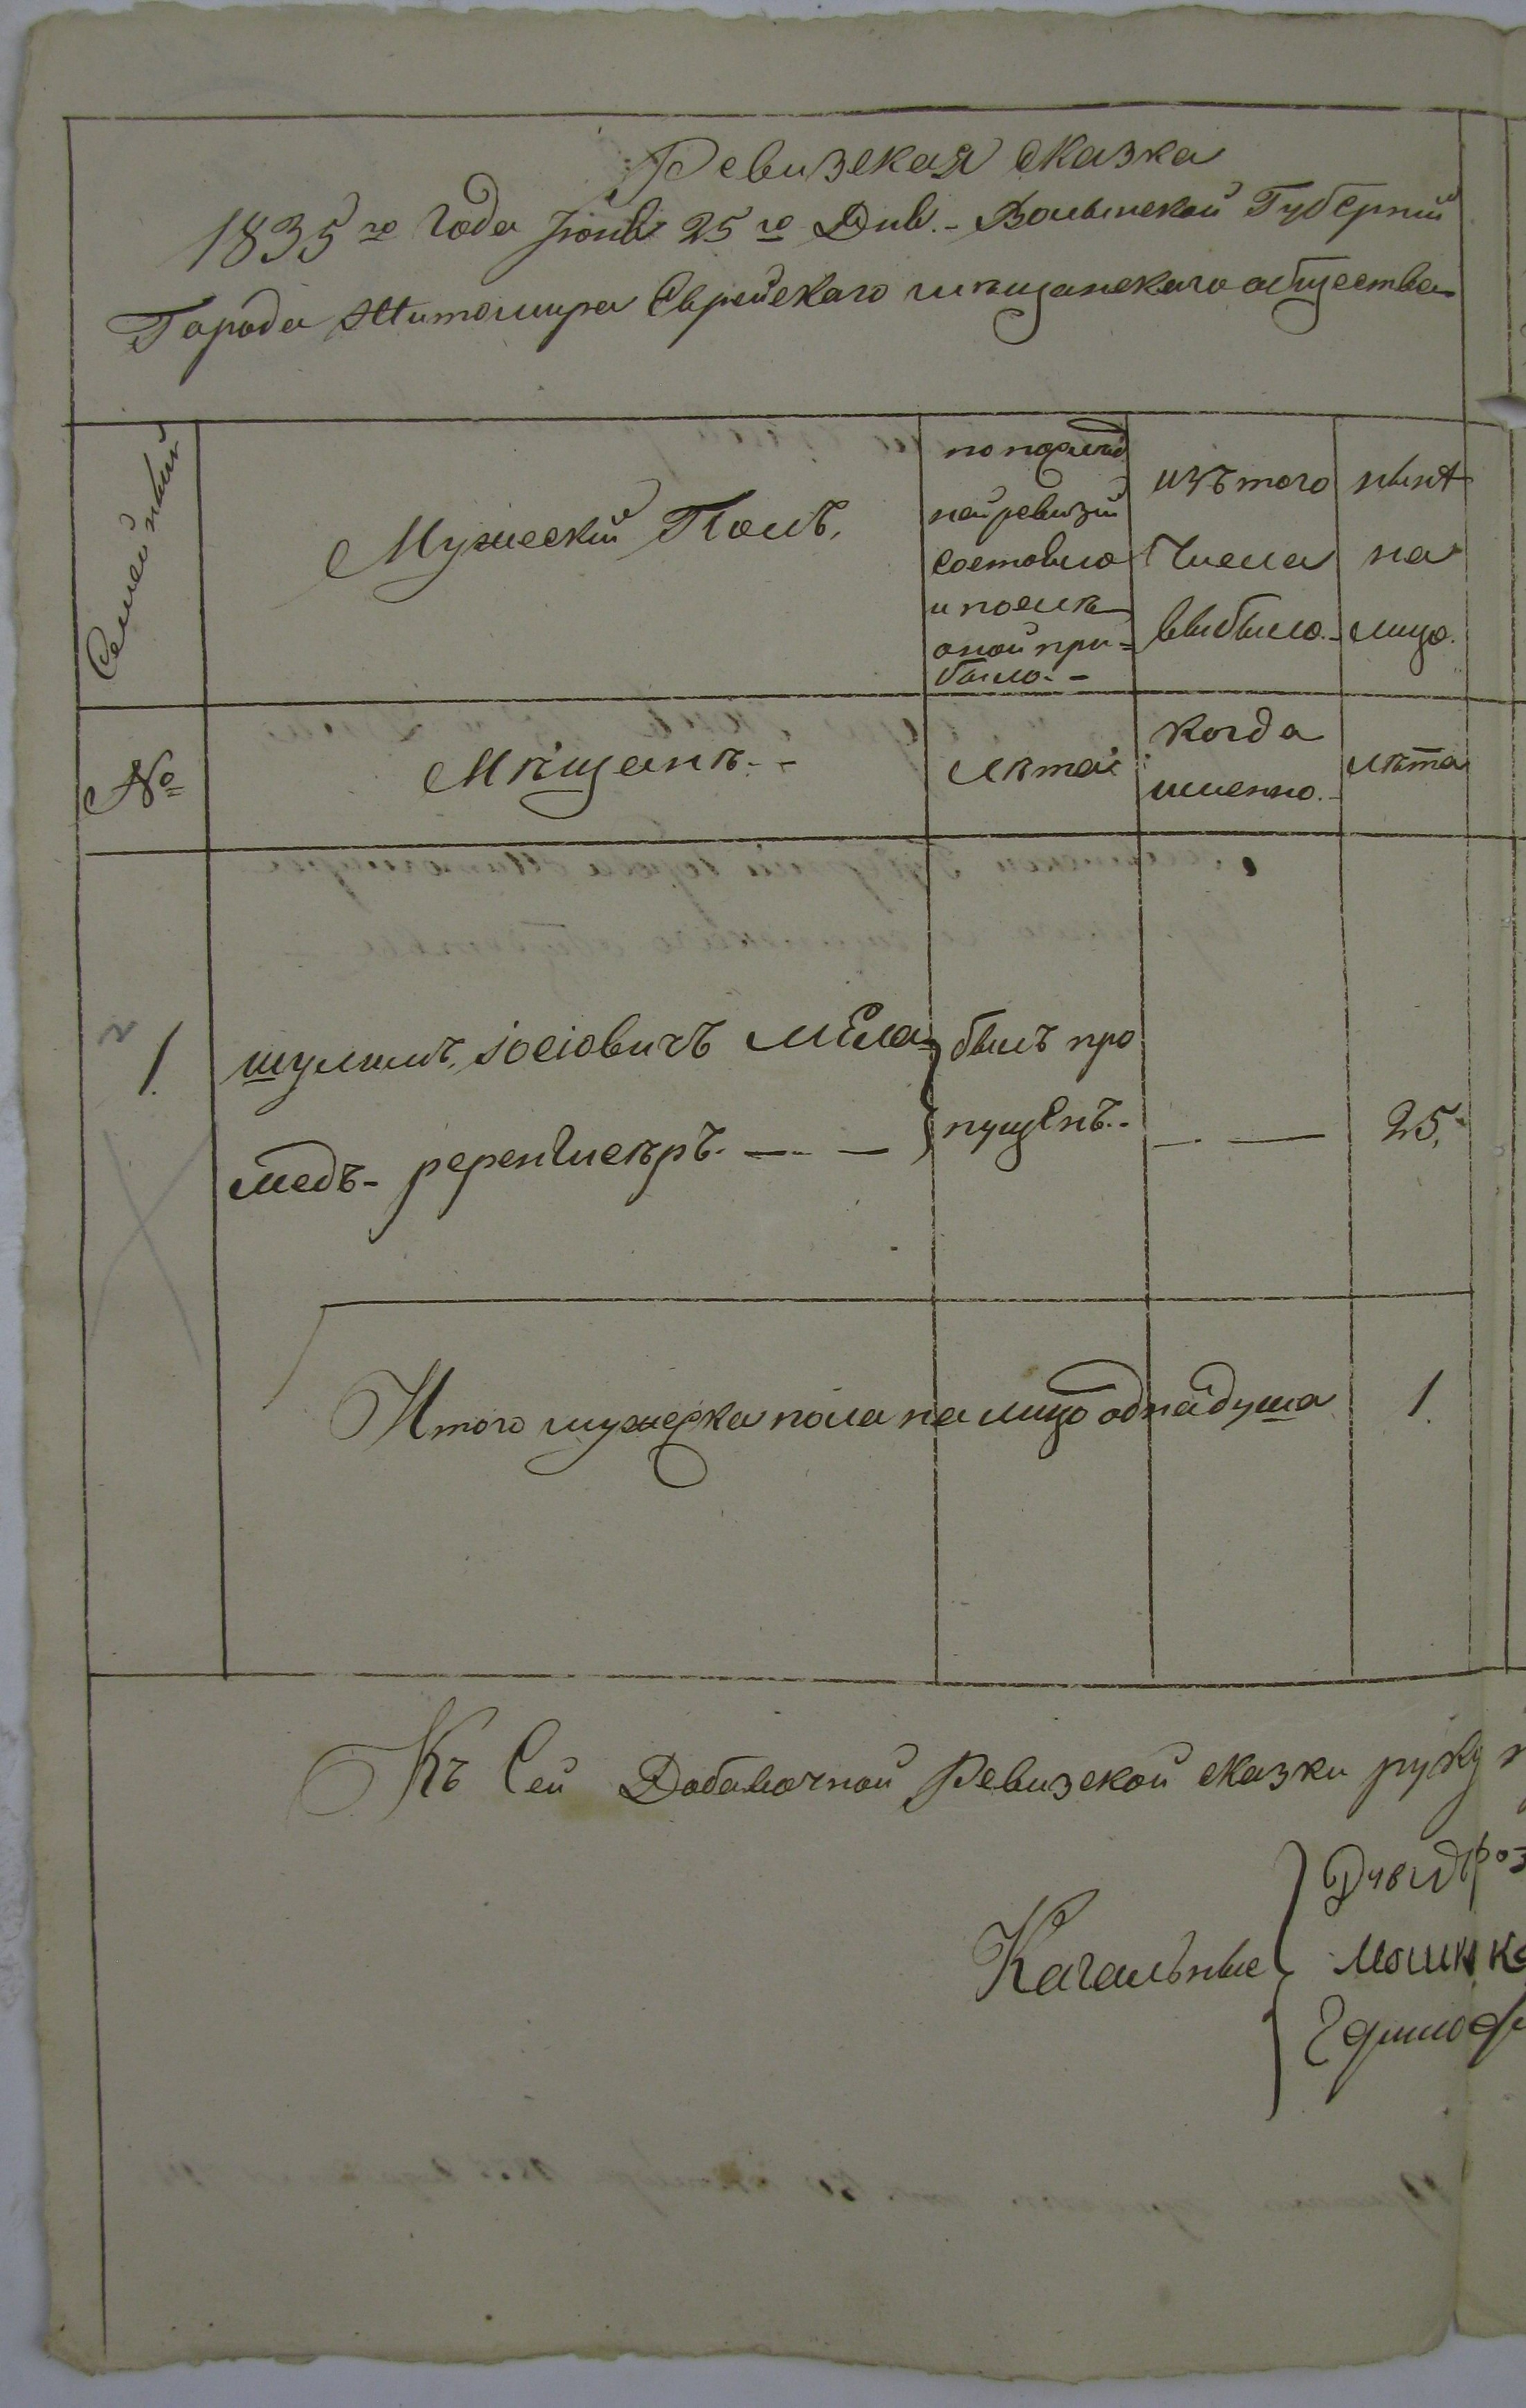 Ревизская сказка
1835го Года Июня 25го Дня. - Волынской Губернии
Города Житомира Еврейского мѣщанского общества
Семейный
Мужеский Полъ.
по послѣд
ней ревизіи
состояло
и послѣ
оной при=
было. -
изъ того
числа
выбыло. -
нынѣ
на
лицо.
№
Мѣщанѣ. -
лѣта
когда
именно. -
лѣта
1.
шулимъ іосіовичъ мела=
медъ -
былъ про
пущенъ. -
25.
Итого мужеска пола на лицо одна душа
1.
Къ Сей Добавочной Ревизской сказки руку
Кагальные
Мошко